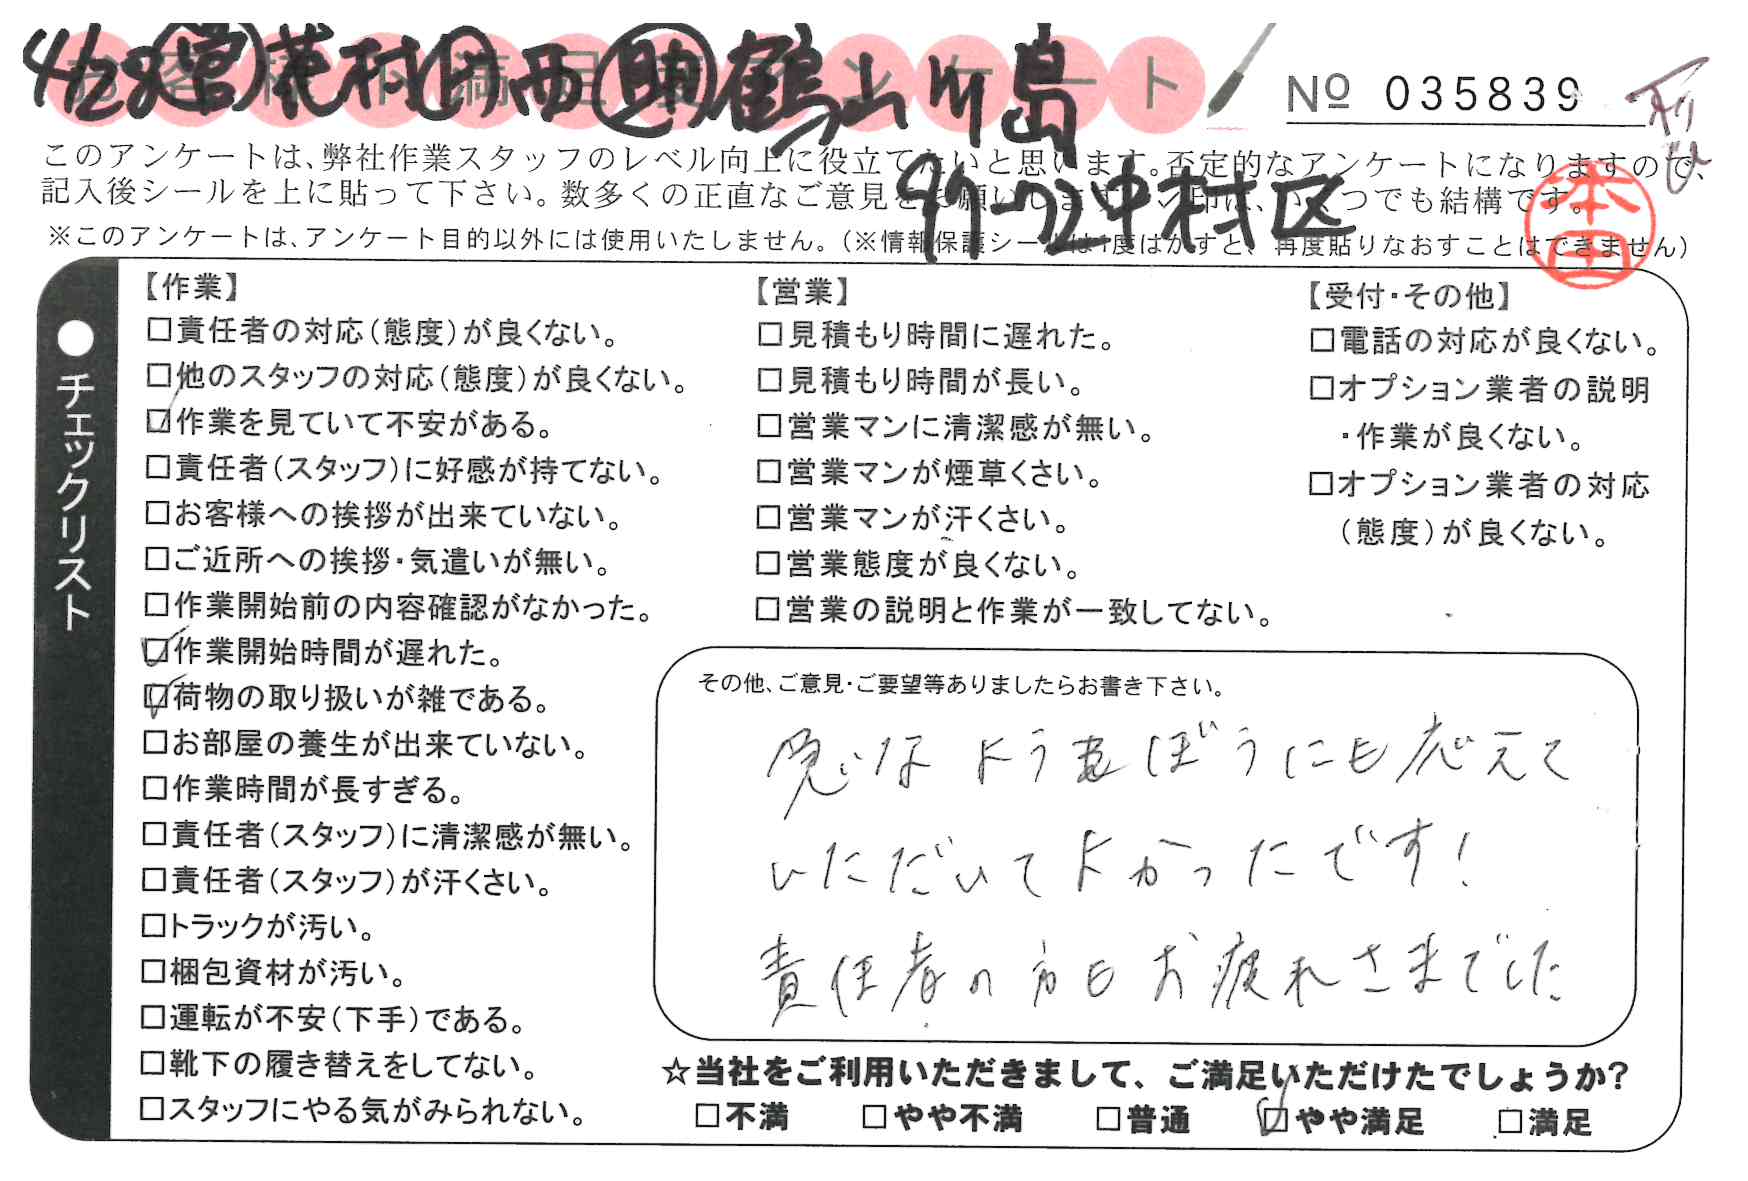 4/28 営 花村 西 鶴山 川島
お客様不満足度アンケート
No 035839
このアンケートは、弊社作業スタッフのレベル向上に役立てたいと思います。否定的なアンケートになりますので、
97-72 中村区
記入後シールを上に貼って下さい。数多くの正直なご意見をお願いします。レ印は、いくつでも結構です。
本田
※このアンケートは、アンケート目的以外には使用いたしません。(※情報保護シールは1度はがすと、再度貼りなおすことはできません)
●チェックリスト
【作業】
□責任者の対応(態度)が良くない。
□他のスタッフの対応(態度)が良くない。
☑作業を見ていて不安がある。
□責任者(スタッフ)に好感が持てない。
□お客様への挨拶が出来ていない。
□ご近所への挨拶・気遣いが無い。
□作業開始前の内容確認がなかった。
☑作業開始時間が遅れた。
☑荷物の取り扱いが雑である。
□お部屋の養生が出来ていない。
□作業時間が長すぎる。
□責任者(スタッフ)に清潔感が無い。
□責任者(スタッフ)が汗くさい。
□トラックが汚い。
□梱包資材が汚い。
□運転が不安(下手)である。
□靴下の履き替えをしてない。
□スタッフにやる気がみられない。
【営業】
□見積もり時間に遅れた。
□見積もり時間が長い。
□営業マンに清潔感が無い。
□営業マンが煙草くさい。
□営業マンが汗くさい。
□営業態度が良くない。
□営業の説明と作業が一致してない。
【受付・その他】
□電話の対応が良くない。
□オプション業者の説明
・作業が良くない。
□オプション業者の対応
(態度)が良くない。
その他、ご意見・ご要望等ありましたらお書き下さい。
急なようぼうにも応えて
いただいてよかったです!
責任者の方もお疲れさまでした
☆当社をご利用いただきまして、ご満足いただけたでしょうか?
□不満 □やや不満 □普通 ☑やや満足 □満足